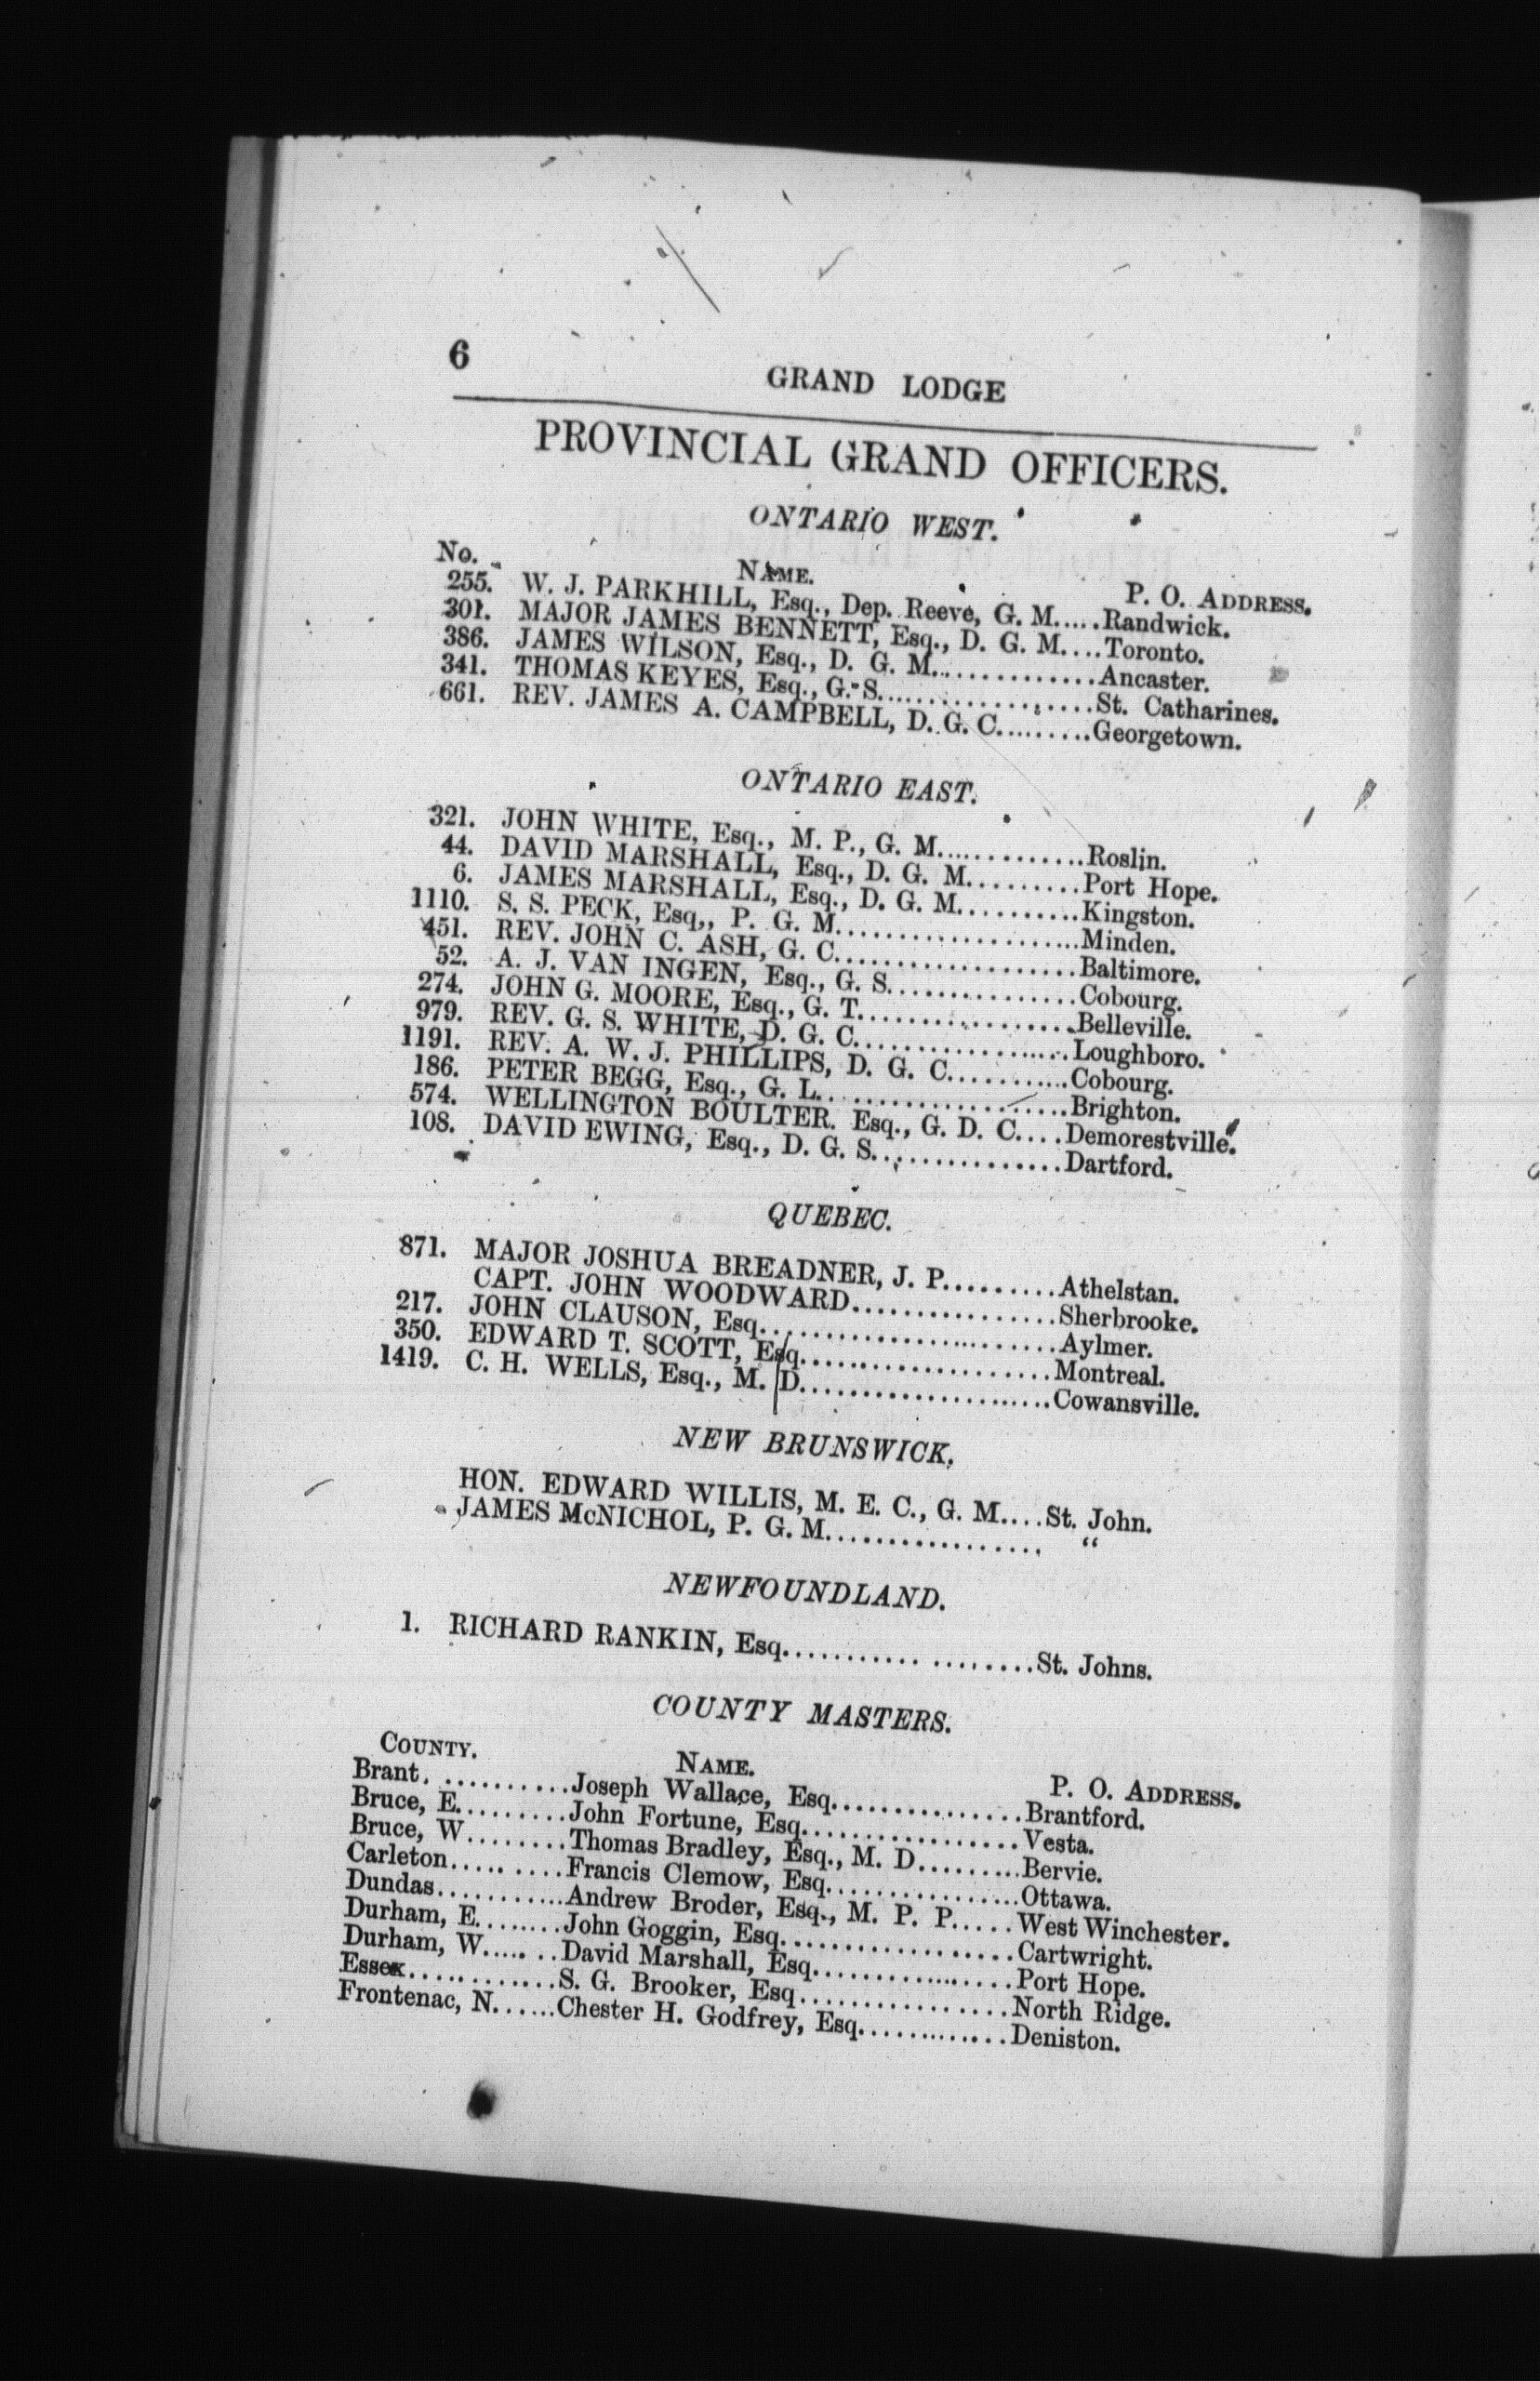 6
GRAND LODGE
PROVINCIAL GRAND OFFICERS.
ONTARIO WEST.
No. NAME. P. O. ADDRESS.
255. W. J. PARKHILL, Esq., Dep. Reeve, G. M.....Randwick.
301. MAJOR JAMES BENNETT, Esq., D. G. M....Toronto.
386. JAMES WILSON, Esq., D. G. M..............Ancaster.
341. THOMAS KEYES, Esq., G. S..................St. Catharines.
661. REV. JAMES A. CAMPBELL, D. G. C.........Georgetown.
ONTARIO EAST.
321. JOHN WHITE, Esq., M. P., G. M.............Roslin.
44. DAVID MARSHALL, Esq., D. G. M.........Port Hope.
6. JAMES MARSHALL, Esq., D. G. M..........Kingston.
1110. S. S. PECK, Esq., P. G. M....................Minden.
451. REV. JOHN C. ASH, G. C...................Baltimore.
52. A. J. VAN INGEN, Esq., G. S...............Cobourg.
274. JOHN G. MOORE, Esq., G. T..................Belleville.
979. REV. G. S. WHITE, D. G. C..................Loughboro.
1191. REV. A. W. J. PHILLIPS, D. G. C..........Cobourg.
186. PETER BEGG, Esq., G. L.....................Brighton.
574. WELLINGTON BOULTER. Esq., G. D. C....Demorestville.
108. DAVID EWING, Esq., D. G. S...............Dartford.
QUEBEC.
871. MAJOR JOSHUA BREADNER, J. P.........Athelstan.
CAPT. JOHN WOODWARD................Sherbrooke.
217. JOHN CLAUSON, Esq........................Aylmer.
350. EDWARD T. SCOTT, Esq....................Montreal.
1419. C. H. WELLS, Esq., M. D....................Cowansville.
NEW BRUNSWICK.
HON. EDWARD WILLIS, M. E. C., G. M....St. John.
JAMES McNICHOL, P. G. M................. “
NEWFOUNDLAND.
1. RICHARD RANKIN, Esq........... ........St. Johns.
COUNTY MASTERS.
COUNTY. NAME. P. O. ADDRESS.
Brant...........Joseph Wallace, Esq...............Brantford.
Bruce, E.........John Fortune, Esq.................Vesta.
Bruce, W........Thomas Bradley, Esq., M. D.........Bervie.
Carleton..... ....Francis Clemow, Esq...............Ottawa.
Dundas...........Andrew Broder, Esq., M. P. P.....West Winchester.
Durham, E........John Goggin, Esq..................Cartwright.
Durham, W..... ..David Marshall, Esq................Port Hope.
Essex............S. G. Brooker, Esq................North Ridge.
Frontenac, N......Chester H. Godfrey, Esq............Deniston.